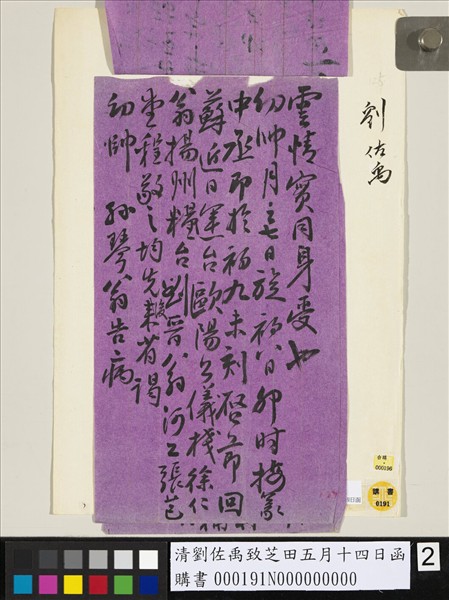 劉佐禹
雲情實同身受也
幼帥月之七日旋初八日卯時接篆
中丞即於初九未刻啓節回
蘇近日運台歐陽公儀棧徐仁
翁揚州糧台劉晉翁河工張芑
堂程敬之均先後來省謁
幼帥 孫琴翁告病
000196
購書
0191
清劉佐禹致芝田五月十四日函
購書 000191N000000000
2